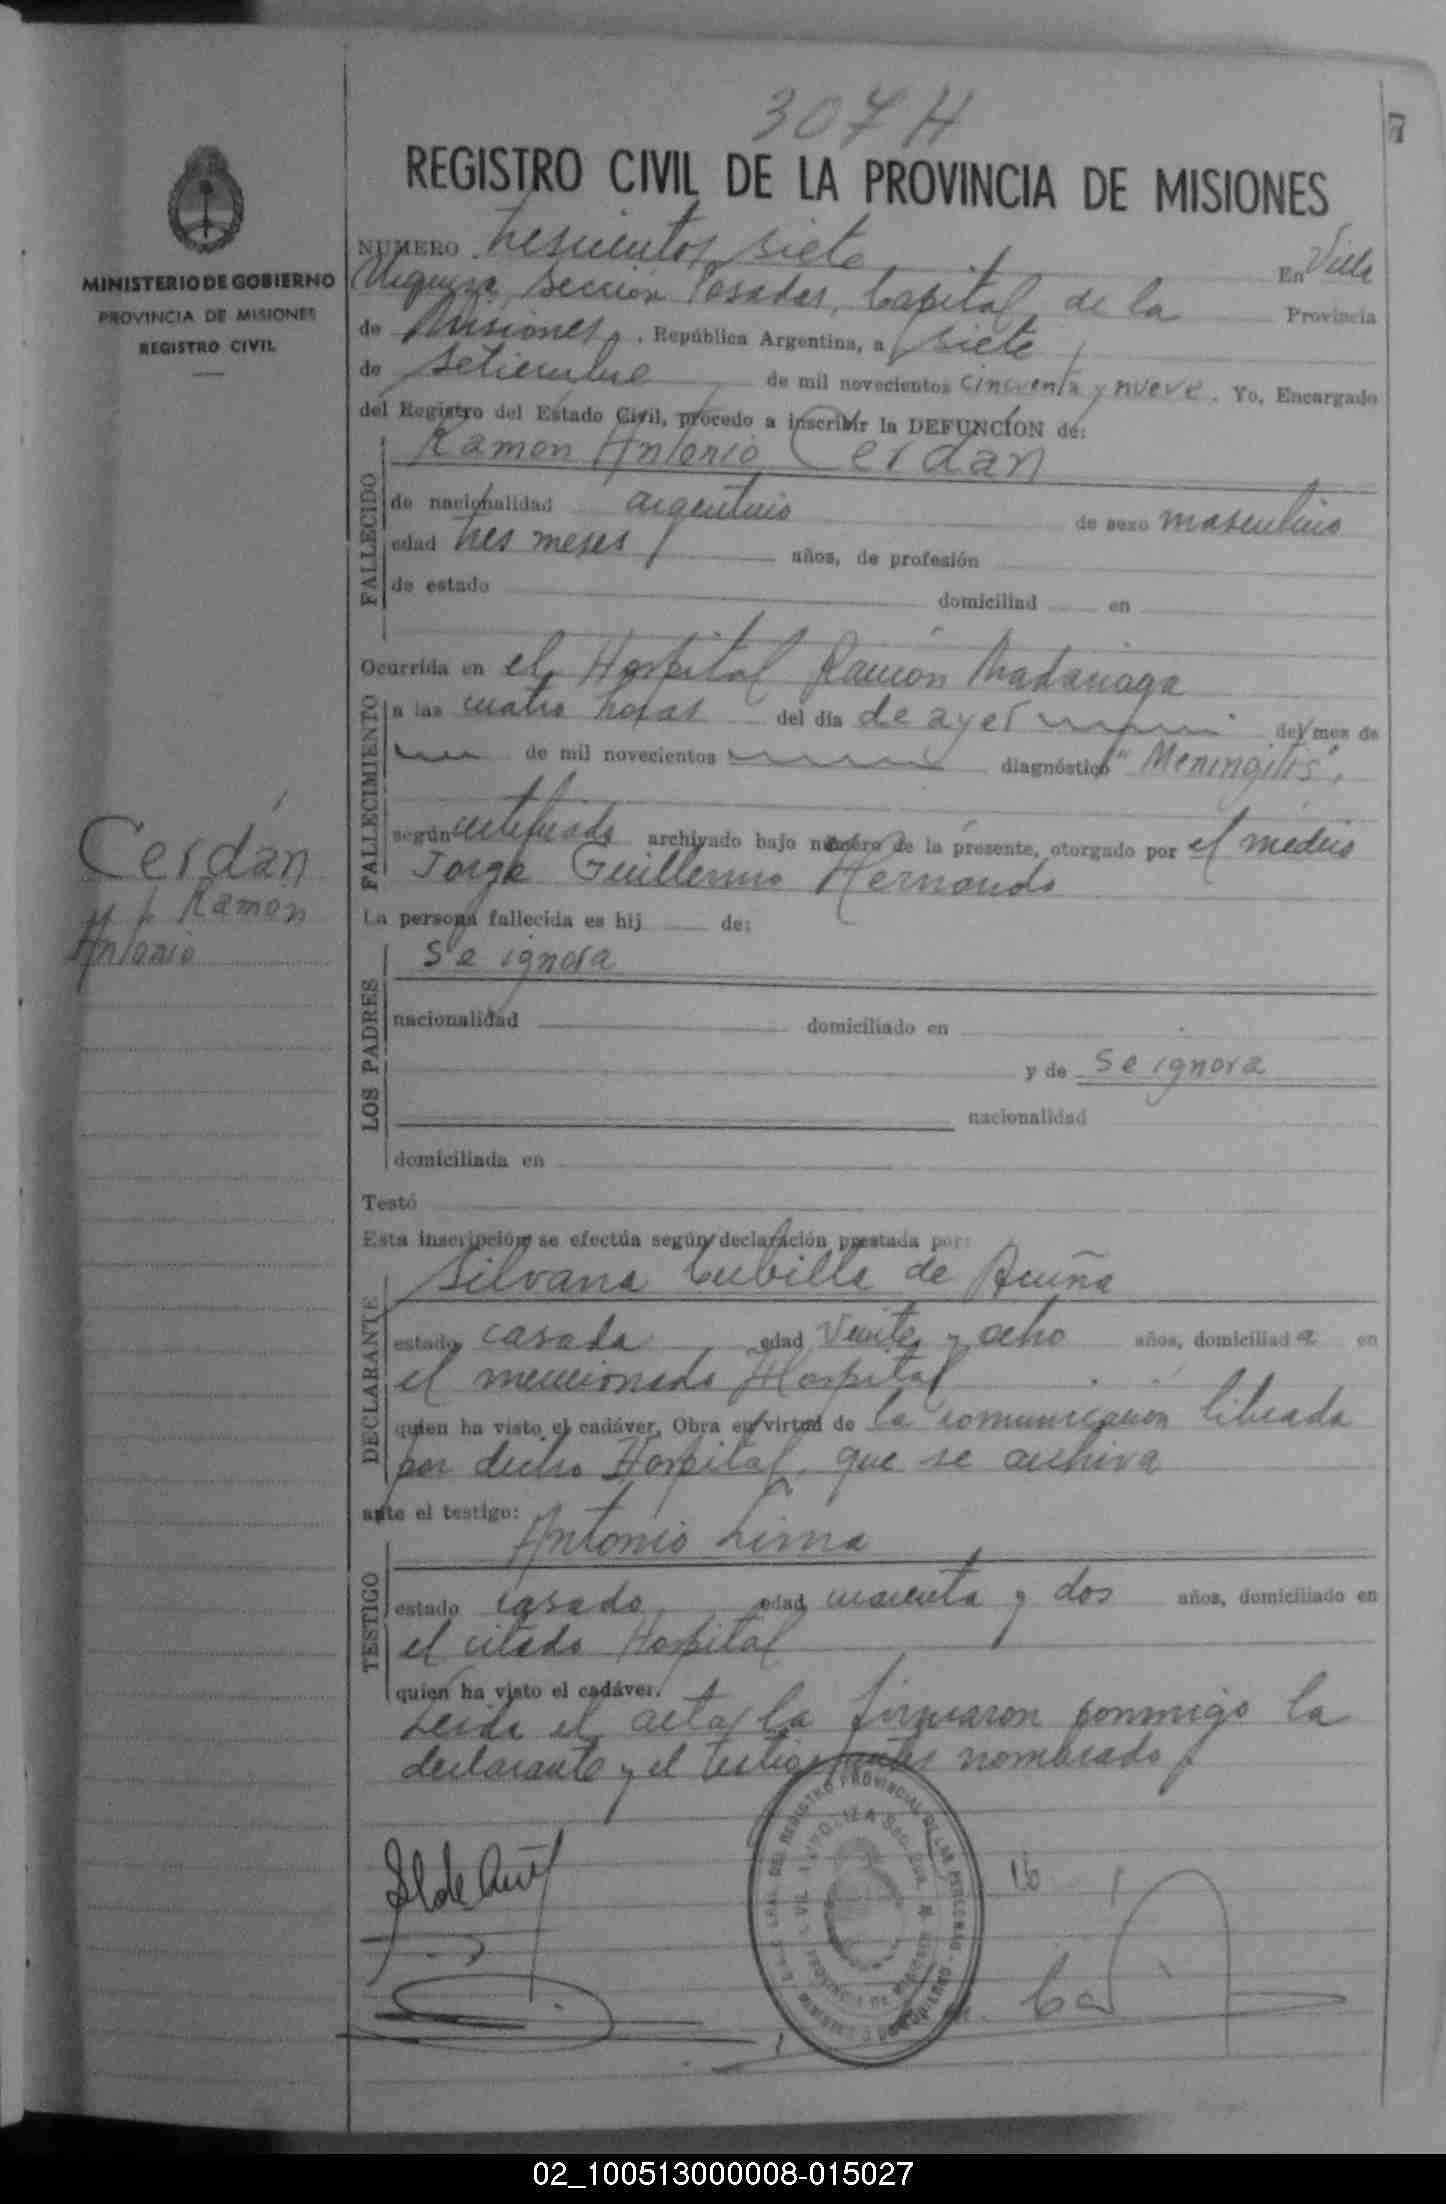 307 H
7
REGISTRO CIVIL DE LA PROVINCIA DE MISIONES
MINISTERIO DE GOBIERNO
PROVINCIA DE MISIONES
REGISTRO CIVIL
NUMERO trescientos siete En Villa
Urquiza, Sección Posadas, Capital de la Provincia
de Misiones, República Argentina, a siete
de Setiembre de mil novecientos cincuenta y nueve. Yo, Encargado
del Registro del Estado Civil, procedo a inscribir la DEFUNCION de:
Ramon Antonio Cerdán
FALLECIDO
de nacionalidad argentino de sexo masculino
edad tres meses años, de profesión
de estado domiciliad en
Ocurrida en el Hospital Ramón Madariaga
FALLECIMIENTO
a las cuatro horas del día de ayer del mes de
de mil novecientos diagnóstico "Meningitis".
según certificado archivado bajo número de la presente, otorgado por el médico
Jorge Guillermo Hernando
Cerdán
Ramon
Antonio
La persona fallecida es hij de:
LOS PADRES
Se ignora
nacionalidad domiciliado en
y de Se ignora
nacionalidad
domiciliada en
Testó
Esta inscripción se efectúa según declaración prestada por:
DECLARANTE
Silvana Cubilla de Acuña
estado casada edad Veinte y ocho años, domiciliad a en
el mencionado Hospital
quien ha visto el cadáver. Obra en virtud de la comunicación librada
por dicho Hospital, que se archiva
ante el testigo:
TESTIGO
Antonio Lima
estado casado edad cuarenta y dos años, domiciliado en
el citado Hospital
quien ha visto el cadáver.
Leida el acta, la firmaron conmigo la
declarante y el testigo antes nombrado
S C de Acuñ
REGISTRO PROVINCIAL DE LAS PERSONAS
PROVINCIA DE MISIONES
02_100513000008-015027